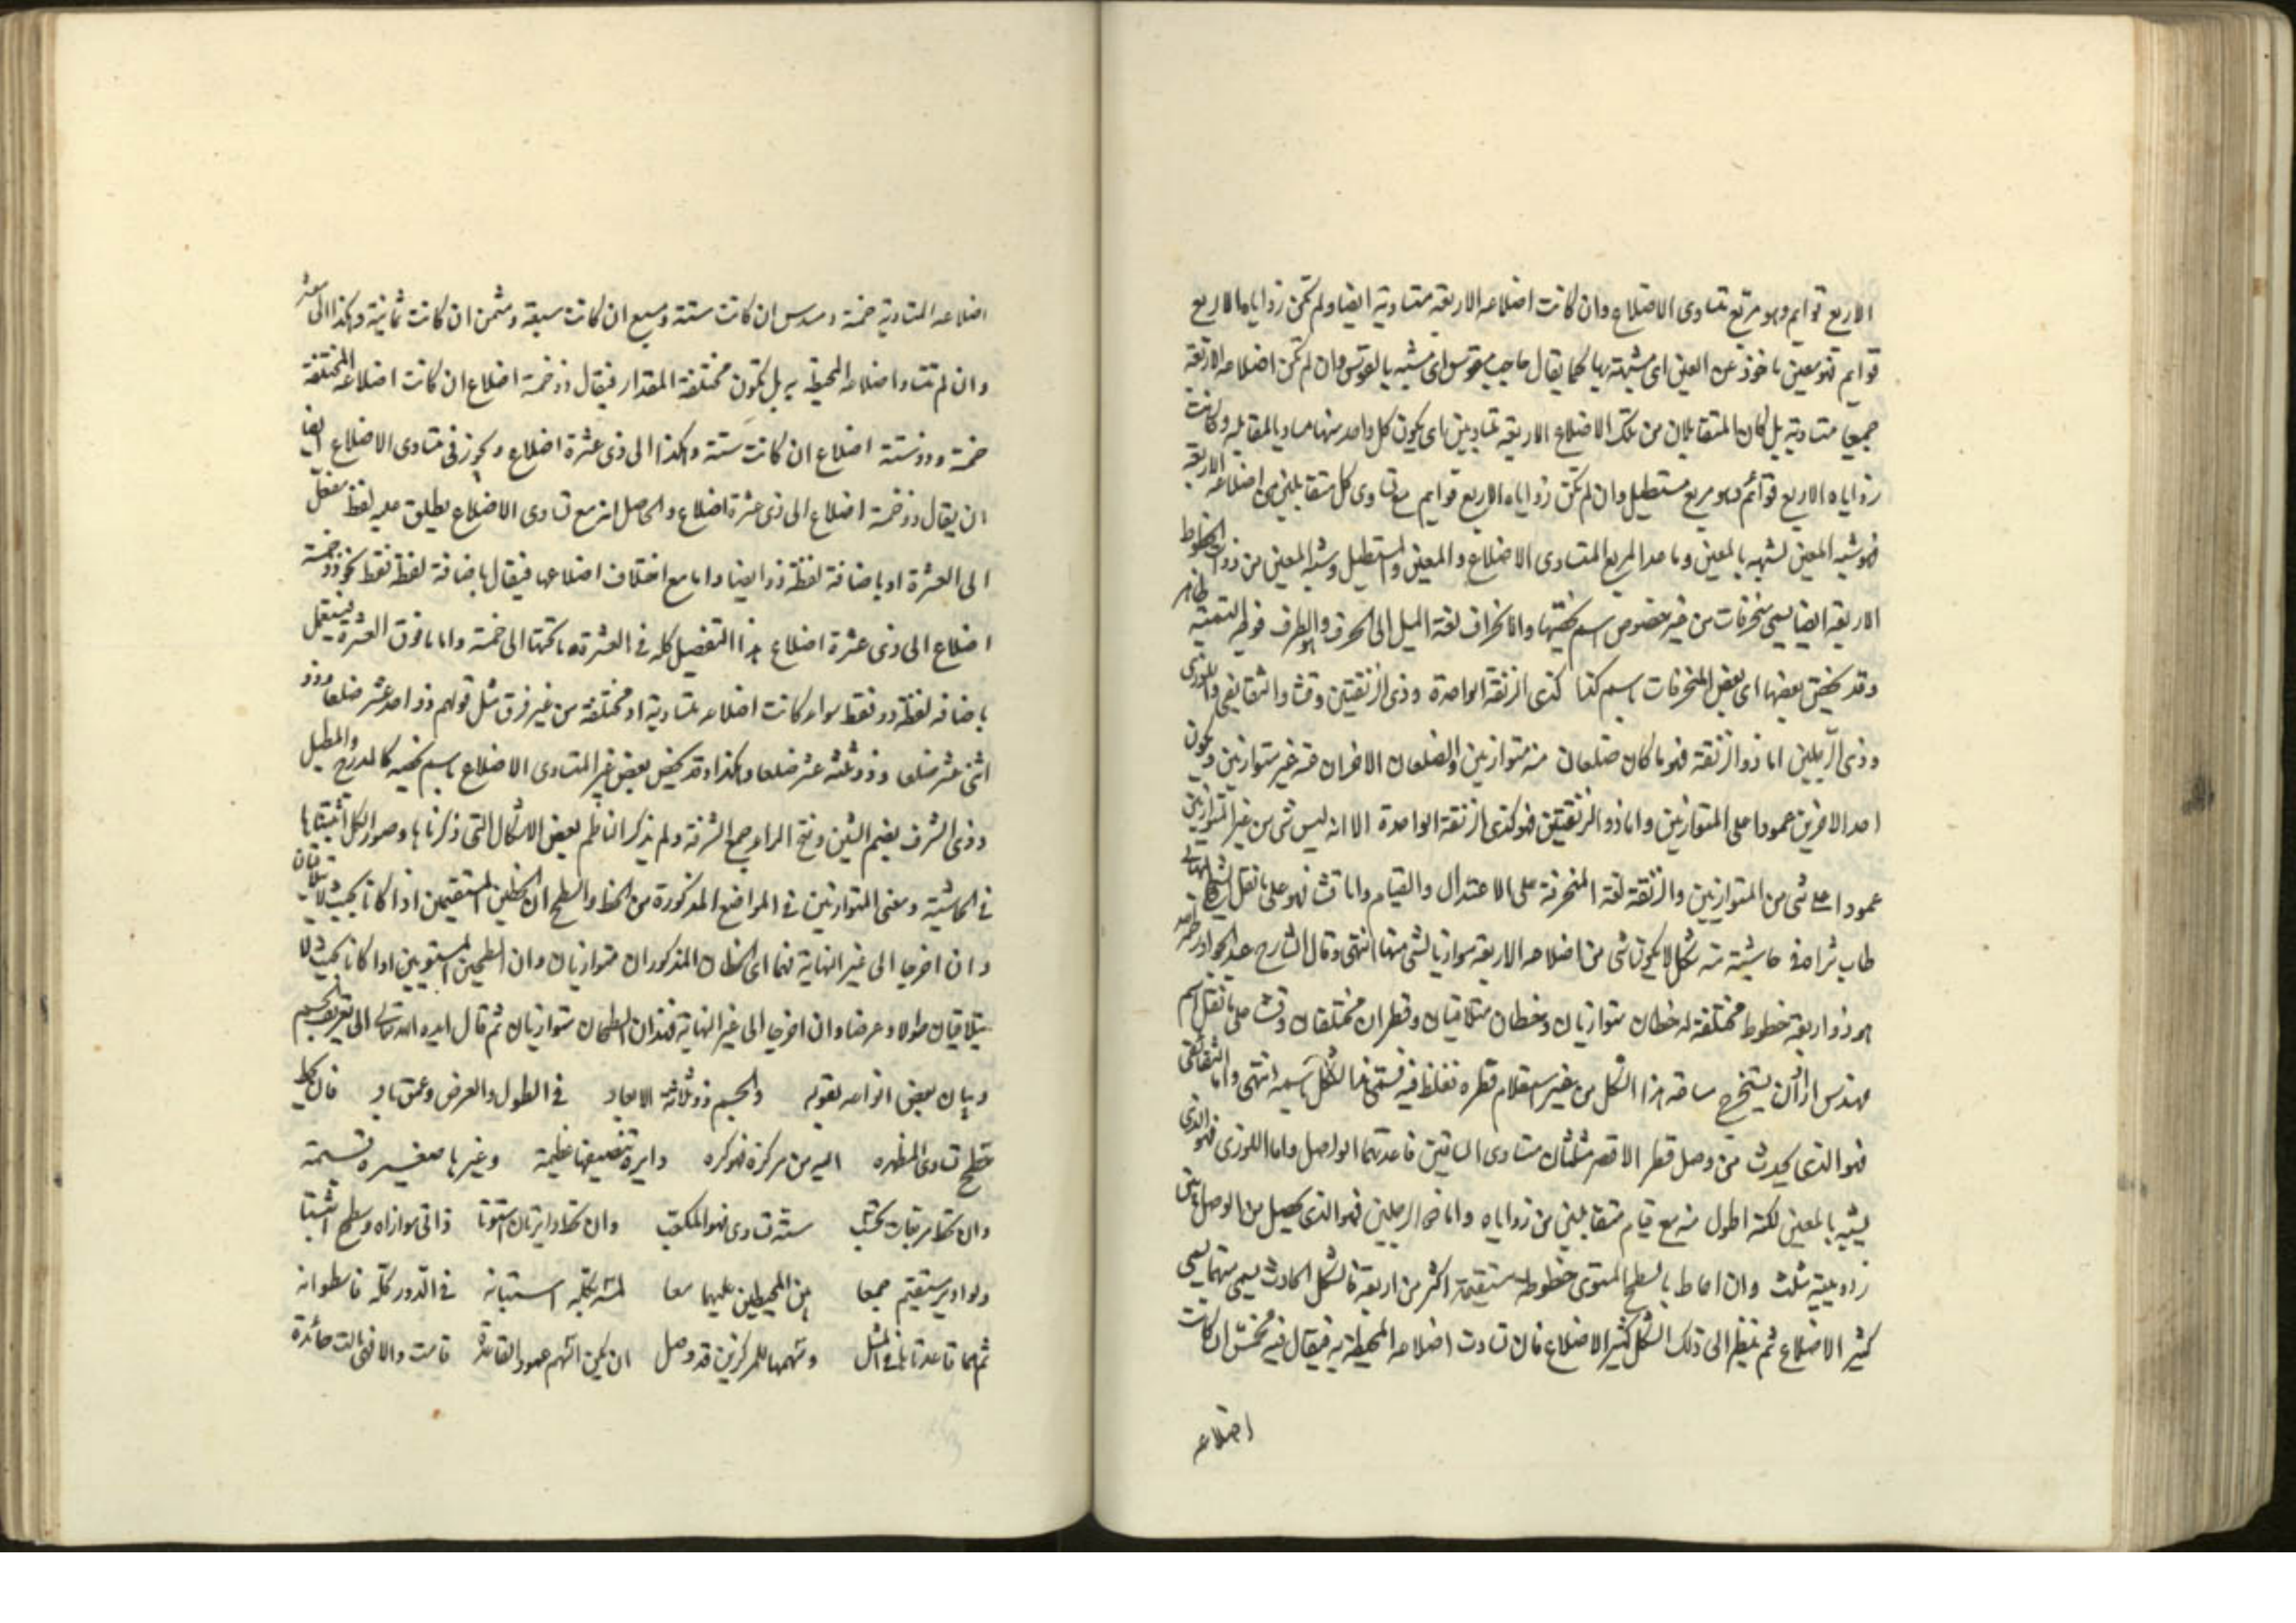 الاربع قوايم وهو مربع متساوى الاضلاع وان كانت اضلاعه الاربعة متساوية ايضا ولم تكن زواياه الاربع
قوايم فهو معين ماخوذ عن العين اى مشبهة بها كما يقال حاجب مقوس اى مشبه بالقوس وان لم تكن اضلاعه الاربعة
جميعا متساوية بل كان المتقابلان من تلك الاضلاع الاربعة متساويين اى يكون كل واحد منهما مساويا لمقابله وكانت
زواياه الاربع قوائم فهو مربع مستطيل وان لم تكن زواياه الاربع قوايم مع تساوى كل متقابلين من اضلاعه الاربعة
فهو شبيه المعين لشبهه بالمعين وما عدا المربع المتساوى الاضلاع والمعين والمستطيل وشبه المعين من ذوات الخطوط
الاربعة ايضا يسمى منحرفات من غير خصوص اسم يختصها والانحراف لغة الميل الى الحرف والطرف فوجه التسمية ظاهر
وقد يختص بعضها اى بعض المنحرفات باسم كذا كذى الزنقة الواحدة وذى الزنقتين وقثا والشقايقى واللوزى
وذى الرجلين اما ذو الزنقة فهو ما كان ضلعان منه متوازيين والضلعان الاخران منه غير متوازيين ويكون
احد الاخرين عمودا على المتوازيين واما ذو الزنقتين فهو كذى الزنقة الواحدة الا انه ليس شى من غير المتوازيين
عمودا على شى من المتوازيين والزنقة لغة المنحرفة على الاعتدال والقيام واما قثا فهو على ما نقل
طاب ثراه فى حاشيته منه شكل لا يكون شى من اضلاعه الاربعة موازيا لشى منها انتهى وقال الشارح
هو ذو اربعة خطوط مختلفة له خطان متوازيان وخطان متلاقيان وقطران مختلفان وقثا على ما نقل اسم
مهندس اراد ان يستخرج مساحة هذا الشكل من غير استعلام قطره فغلط فيه فسمى هذا الشكل باسمه انتهى واما الشقائقى
فهو الذى يحدث من وصل قطر الاقصر مثلثان متساوى الساقين قاعدتهما الواصل واما اللوزى فهو الذى
يشبه بالمعين لكنه اطول منه مع قيام متقابلين من زواياه واما ذو الرجلين فهو الذى يحصل من الوصل بين
زاويتيه مثلث وان احاط بالسطح المستوى خطوط مستقيمة اكثر من اربعة فالشكل الحادث يسمى
كثير الاضلاع ثم ينظر الى ذلك الشكل كثير الاضلاع فان تساوت اضلاعه المحيطة به فيقال فيه مخمس ان كانت
اضلاعه
اضلاعه المتساوية خمسة ومسدس ان كانت ستة ومسبع ان كانت سبعة ومثمن ان كانت ثمانية وهكذا الى معشر
وان لم تتساو اضلاعه المحيطة به بل تكون مختلفة المقدار فيقال ذو خمسة اضلاع ان كانت اضلاعه المختلفة
خمسة وذو ستة اضلاع ان كانت ستة وهكذا الى ذى عشرة اضلاع ويجوز فى متساوى الاضلاع ايضا
ان يقال ذو خمسة اضلاع الى ذى عشرة اضلاع والحاصل انه مع تساوى الاضلاع يطلق عليه لفظ مفعل
الى العشرة او باضافة لفظة ذو ايضا واما مع اختلاف اضلاعه فيقال باضافة لفظة فقط نحو ذو خمسة
اضلاع الى ذى عشرة اضلاع هذا التفصيل كله فى العشرة وما تحتها الى خمسة واما ما فوق العشرة فيستعمل
باضافة لفظة ذو فقط سواء كانت اضلاعه متساوية او مختلفة من غير فرق مثل قولهم ذو احد عشر ضلعا وذو
اثنى عشر ضلعا وذو ثلثه عشر ضلعا وهكذا وقد يختص بعض غير المتساوى الاضلاع باسم يخصه كالمدرج والمطبل
وذى الشرف بضم الشين وفتح الراء جمع الشرفة ولم يذكر الناظم بعض الاشكال التى ذكرناها وصور الكل اثبتناها
فى الحاشية ومعنى المتوازيين فى المواضع المذكورة من الخط والسطح ان الخطين المستقيمين اذا كانا بحيث لا يتلاقيان
وان اخرجا الى غير النهاية فهما اى الخطان المذكوران متوازيان وان السطحين المستويين اذا كانا بحيث لا
يتلاقيان طولا وعرضا وان اخرجا الى غير النهاية فهذان السطحان متوازيان ثم قال ايده الله تعالى الى تعريف الجسم
وبيان بعض انواعه بقوله والجسم ذو ثلاثة الابعاد فى الطول والعرض وعمق باد فان يحط
سطح تساوى اليه من مركزه فهو كره دايرة تنصيفها عظيمة وغيرها صغيرة قسيمة
وان تحط مربعات ستة تساوى فهو المكعب وان تحط دايرتان استوتا ذاتى موازاه وسطح اثبتا
ولو ادير مستقيم جميعا من المحيطين عليهما معا فى الدور كله فاسطوانه
ثم هما قاعدتا وسهمها للمركزين قد وصل ان يكن السهم عمود القاعدة قامت والا فهى مالت حائدة